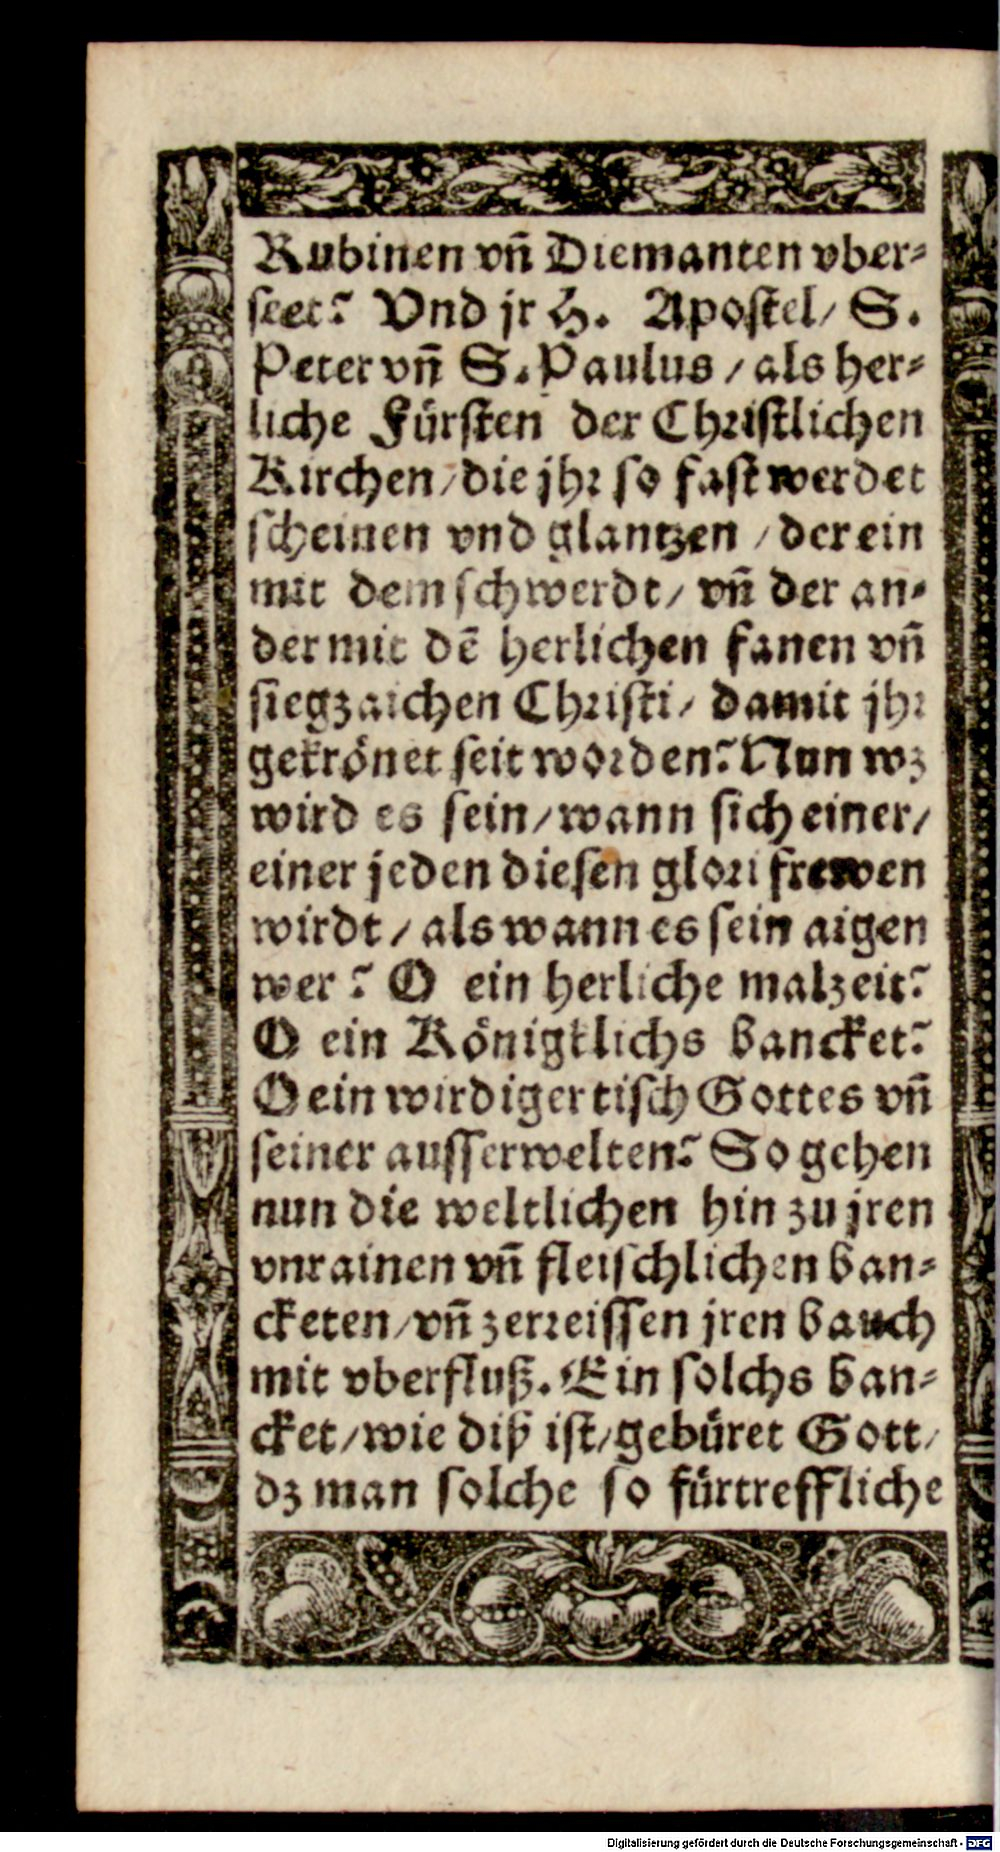 Rubinen vñ Diemanten vber⸗
seet? Vnd jr H. Apostel/ S.
Peter vñ S. Paulus / als her⸗
liche Fürsten der Christlichen
Kirchen/ die jhr so fast werdet
scheinen vnd glantzen / der ein
mit dem schwerdt/ vñ der an⸗
der mit dē herlichen fanen vñ
siegzaichen Christi/ damit jhr
gekrönet seit worden? Nun wz
wird es sein/ wann sich einer/
einer jeden diesen glori frewen
wirdt / als wann es sein aigen
wer? O ein herliche malzeit?
O ein Königklichs bancket?
O ein wirdiger tisch Gottes vñ
seiner ausserwelten? So gehen
nun die weltlichen hin zu jren
vnrainen vñ fleischlichen ban⸗
cketen/ vñ zerreissen jren bauch
mit vberfluß. Ein solchs ban⸗
cket/ wie diß ist/ gebüret Gott/
dz man solche so fürtreffliche
Digitalisierung gefördert durch die Deutsche Forschungsgemeinschaft - DFG